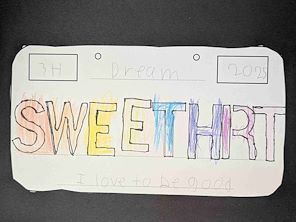 3H Dream 2025
SWEETHRT
I love to be good